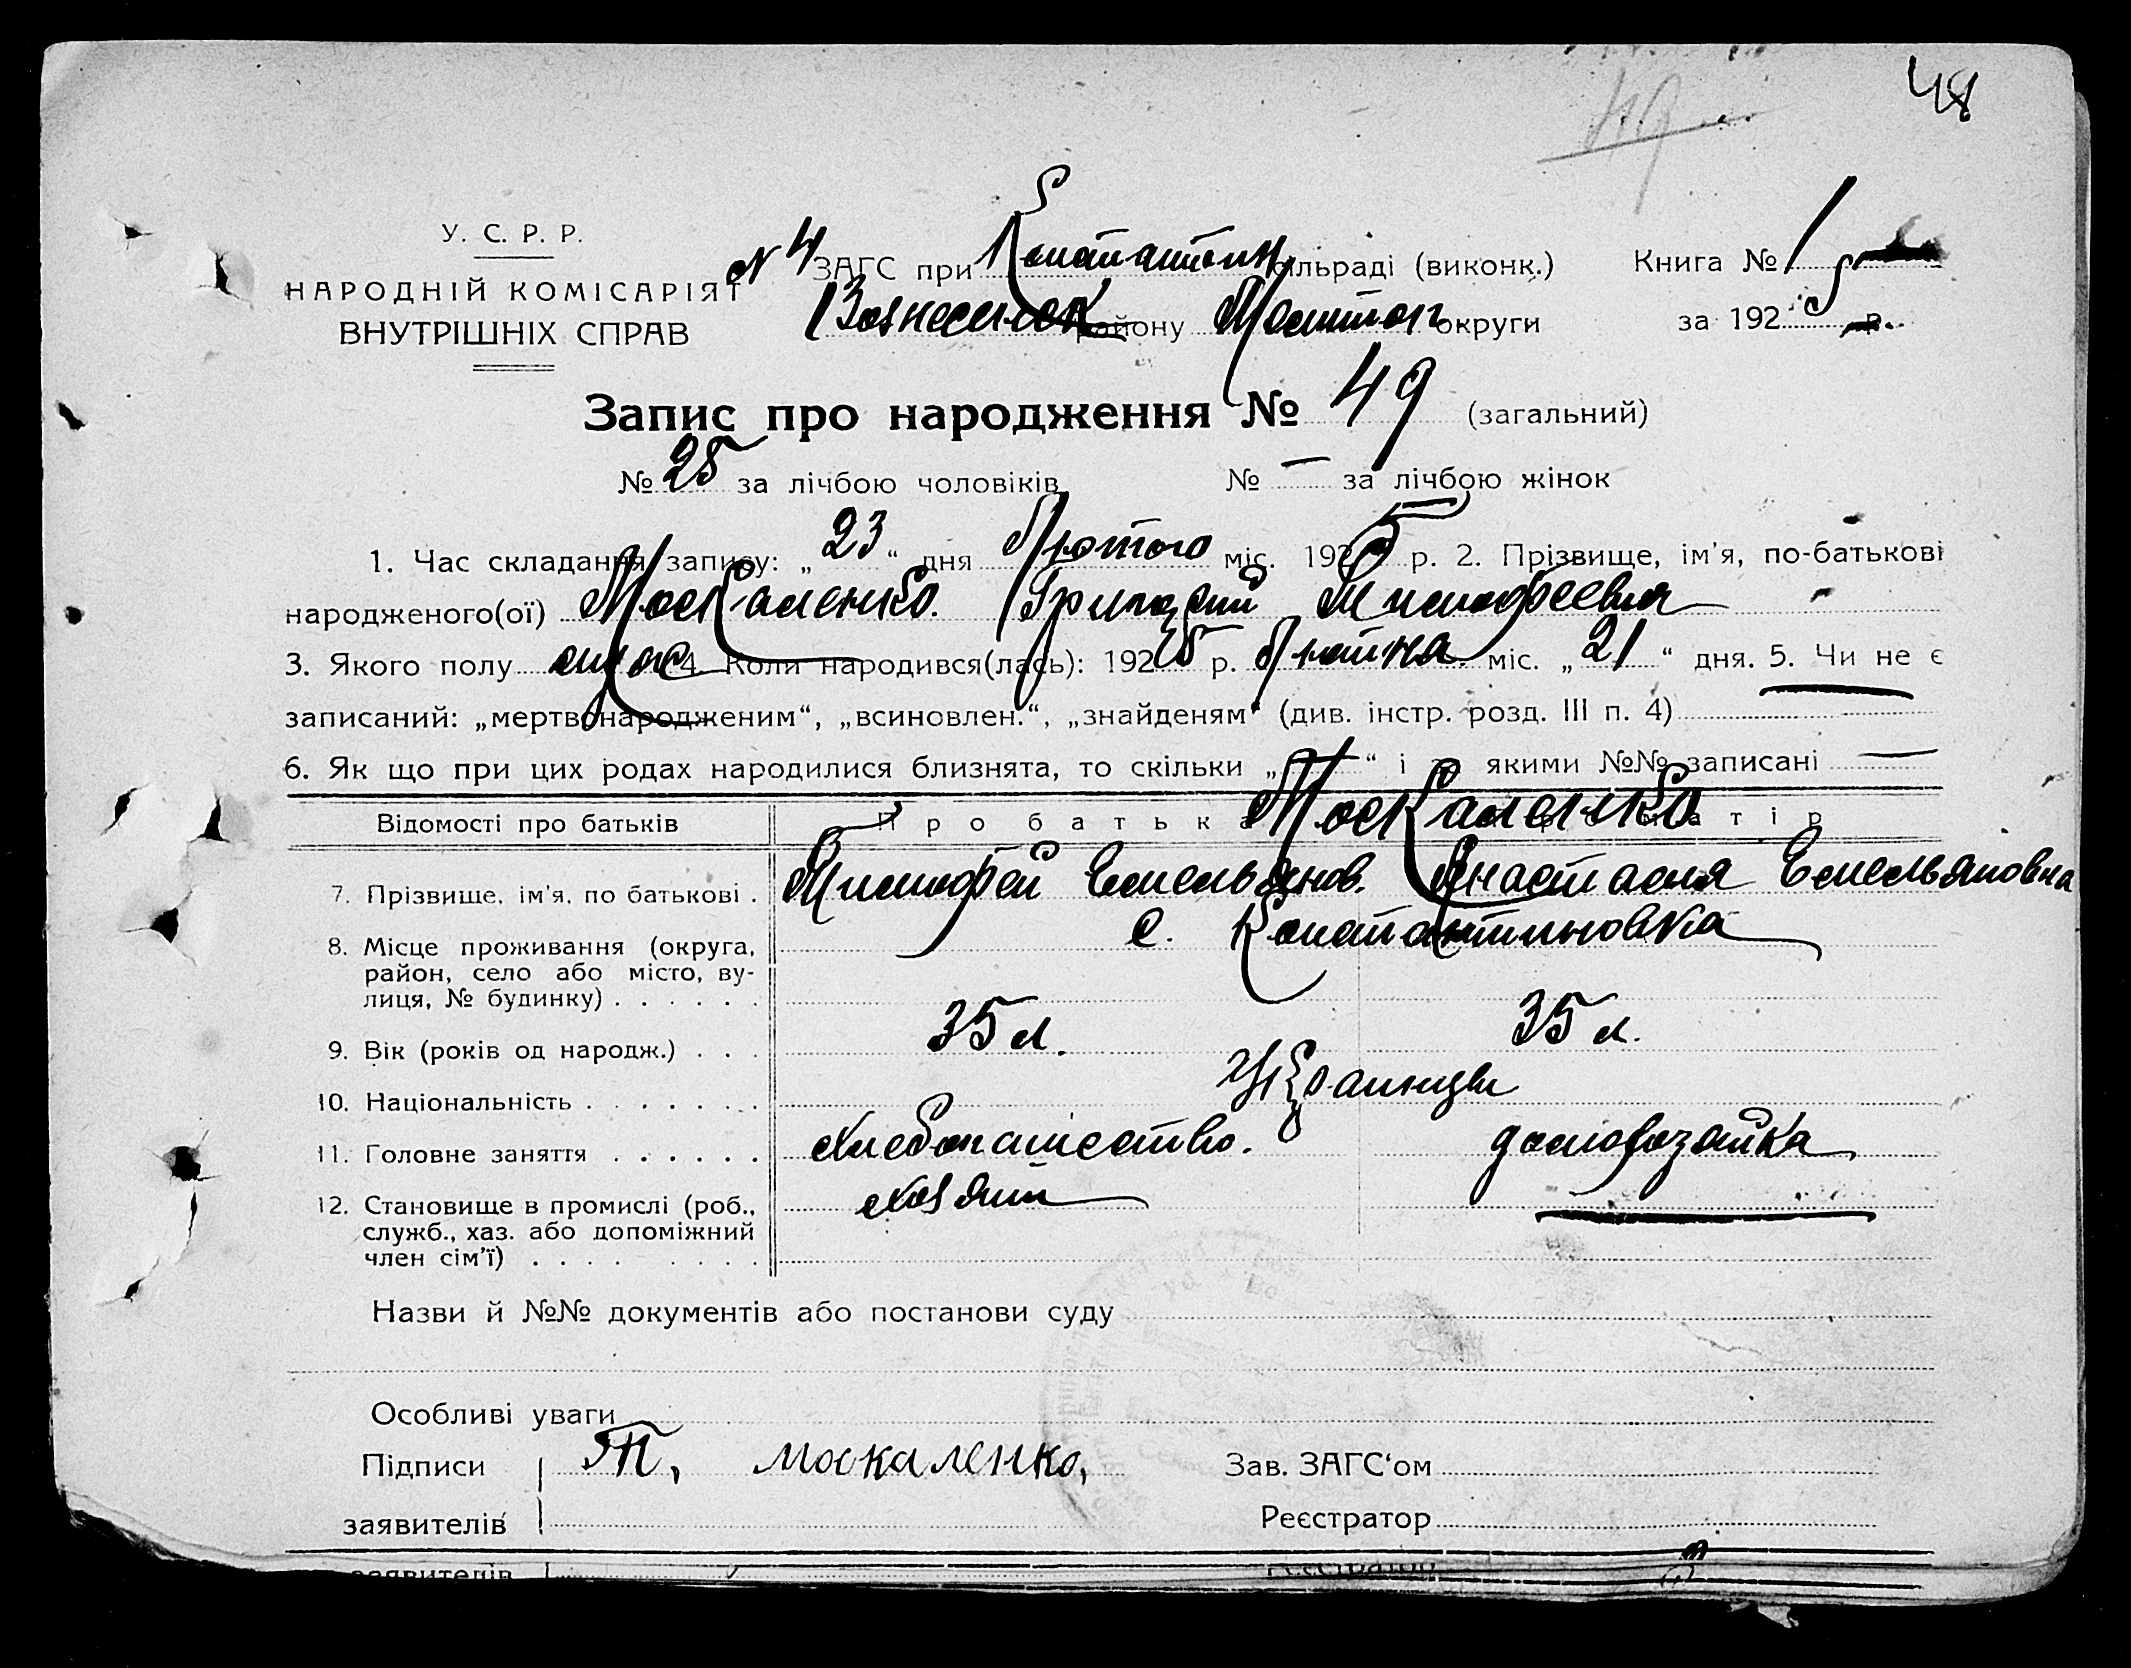 48
49
У. С. Р. Р.
НАРОДНІЙ КОМІСАРІЯТ
ВНУТРІШНІХ СПРАВ
N 4 ЗАГС при Константин сільраді (виконк.) Книга № 1
Вознесенск району округи за 192 5 р.
Запис про народження № 49 (загальний)
№ 25 за лічбою чоловіків № — за лічбою жінок
1. Час складання запису: „ 23 “ дня Лютого міс. 192 5 р. 2. Прізвище, ім'я, по-батькові
народженого(ої) Москаленко Григорий Тимофеевич
3. Якого полу муж 4. Коли народився(лась): 192 5 р. Лютня міс. „ 21 “ дня. 5. Чи не є
записаний: „мертвонародженим“, „всиновлен.“, „знайденям“ (див. інстр. розд. III п. 4)
6. Як що при цих родах народилися близнята, то скільки „ — “ і під якими №№ записані —
Відомості про батьків Про батька Про матір
Москаленко
7. Прізвище, ім'я, по батькові . Тимофей Емельянов. Анастасия Емельяновна
8. Місце проживання (округа, район, село або місто, вулиця, № будинку) . . . . . . с. Константиновка
9. Вік (років од народж.) . . . 35 л. 35 л.
10. Національність . . . . . . . Украинцы
11. Головне заняття . . . . . . Хлебопашество. домохозяйка
12. Становище в промислі (роб., служб., хаз. або допоміжний член сім'ї) . . . . . . . . хозяин
Назви й №№ документів або постанови суду
Особливі уваги
Підписи Т, москаленко, Зав. ЗАГС'ом
заявителів Реєстратор
заявителів Реєстратор